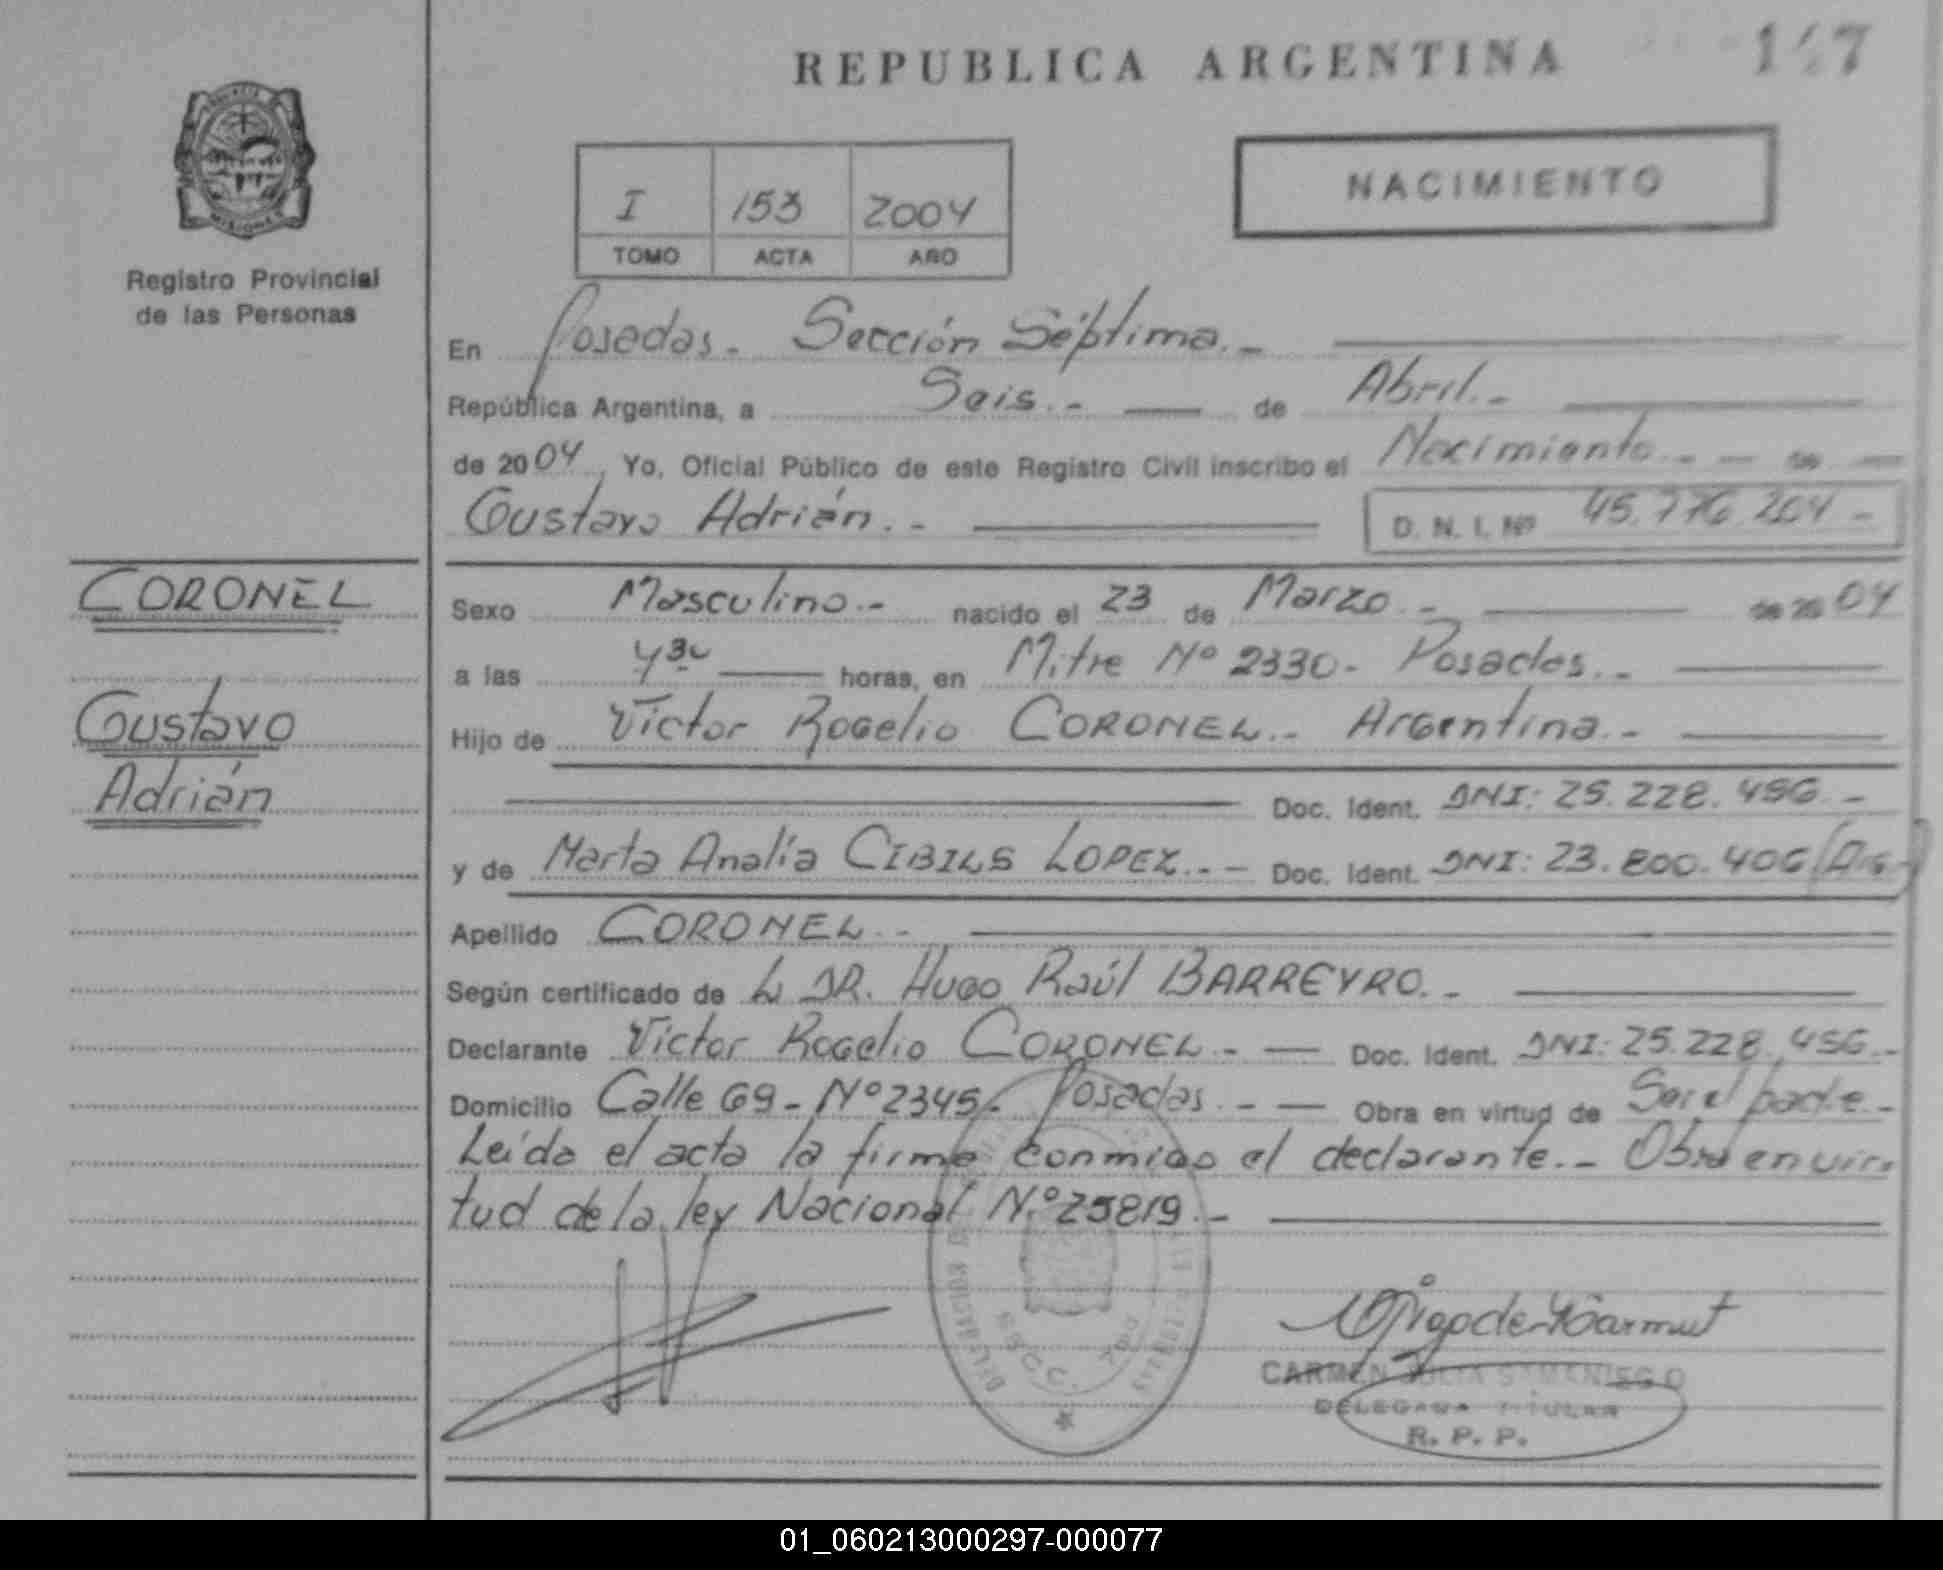 REPUBLICA ARGENTINA
PROVINCIA DE
MISIONES
Registro Provincial
de las Personas
I 153 2004
TOMO ACTA AÑO
NACIMIENTO
En Posadas.- Sección Séptima.-
República Argentina, a Seis.- de Abril.-
de 2004, Yo, Oficial Público de este Registro Civil inscribo el Nacimiento.-
Gustavo Adrián.- D. N. I. Nº 45.776.204-
CORONEL
Gustavo
Adrián
Sexo Masculino.- nacido el 23 de Marzo.- 04
a las 4 30 horas, en Mitre Nº 2330- Posadas.-
Hijo de Víctor Rogelio CORONEL.- Argentina.-
Doc. Ident. DNI: 25.228.456.-
y de Marta Analía CIBILS LOPEZ.- Doc. Ident. DNI: 23.800.406 (Arg.)
Apellido CORONEL.-
Según certificado de DR. Hugo Raúl BARREYRO.-
Declarante Víctor Rogelio CORONEL.- Doc. Ident. DNI: 25.228.456.-
Domicilio Calle 69- Nº 2345- Posadas.- Obra en virtud de Ser el padre.-
Leída el acta la firma conmigo el declarante.- Obra en vir-
tud de la ley Nacional Nº 25819.-
DELEGACION
SECC. 7ma
CARMEN JULIA SAMANIEGO
DELEGADA TITULAR
R. P. P.
01_060213000297-000077